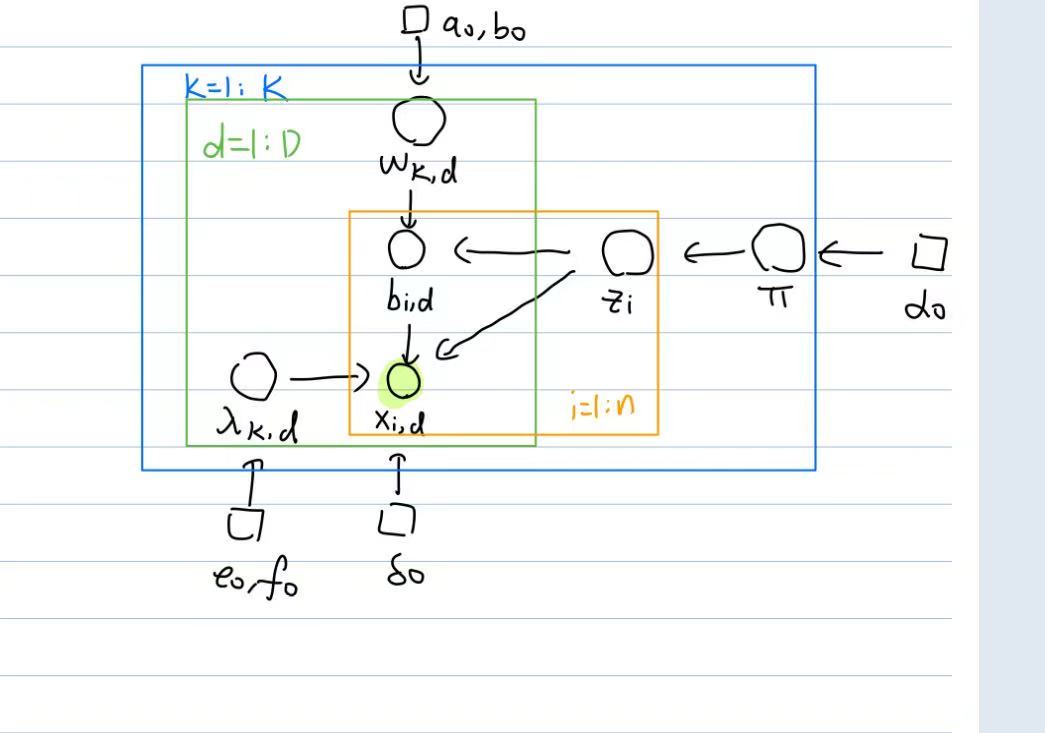 a₀,b₀
K=1:K
d=1:D
w_K,d
b_i,d
z_i
π
α₀
λ_K,d
x_i,d
i=1:n
e₀,f₀
δ₀